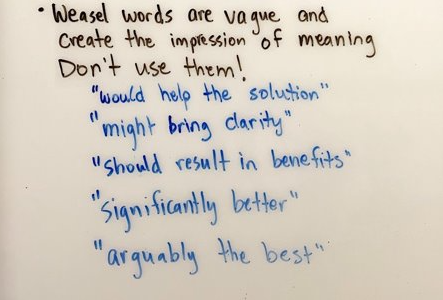 • Weasel words are vague and
create the impression of meaning
Don't use them!
"would help the solution"
"might bring clarity"
"should result in benefits"
"significantly better"
"arguably the best"